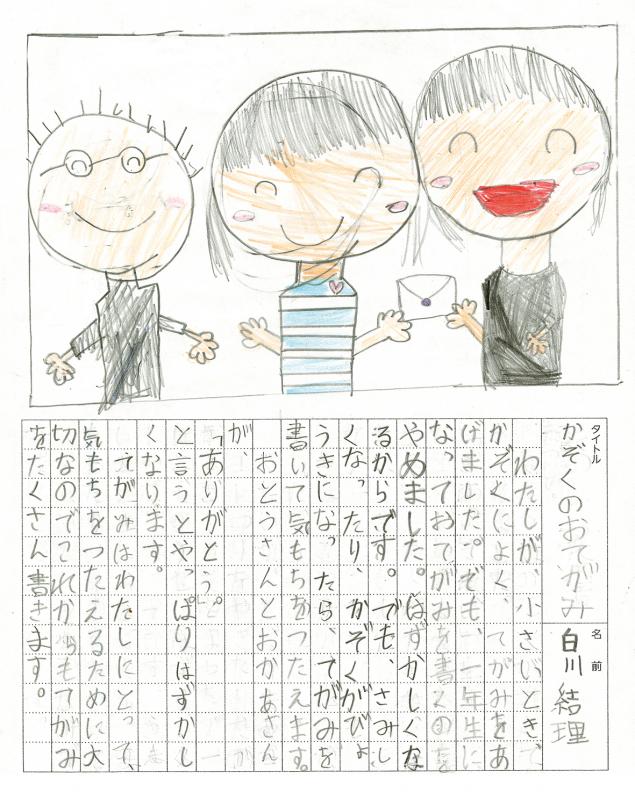 タイトル
かぞくのおてがみ
名前
白川結理
わたしが、小さいときで
かぞくによく、てがみをあ
げました。でも、一年生に
なっておてがみを書くのを
やめました。はずかしくな
るからです。でも、さみし
くなったり、かぞくがびょ
うきになったら、てがみを
書いて気もちをつたえます。
おとうさんとおかあさん
が、
「ありがとう。」
と言うとやっぱりはずかし
くなります。
てがみはわたしにとって、
気もちをつたえるために大
切なのでこれからもてがみ
をたくさん書きます。